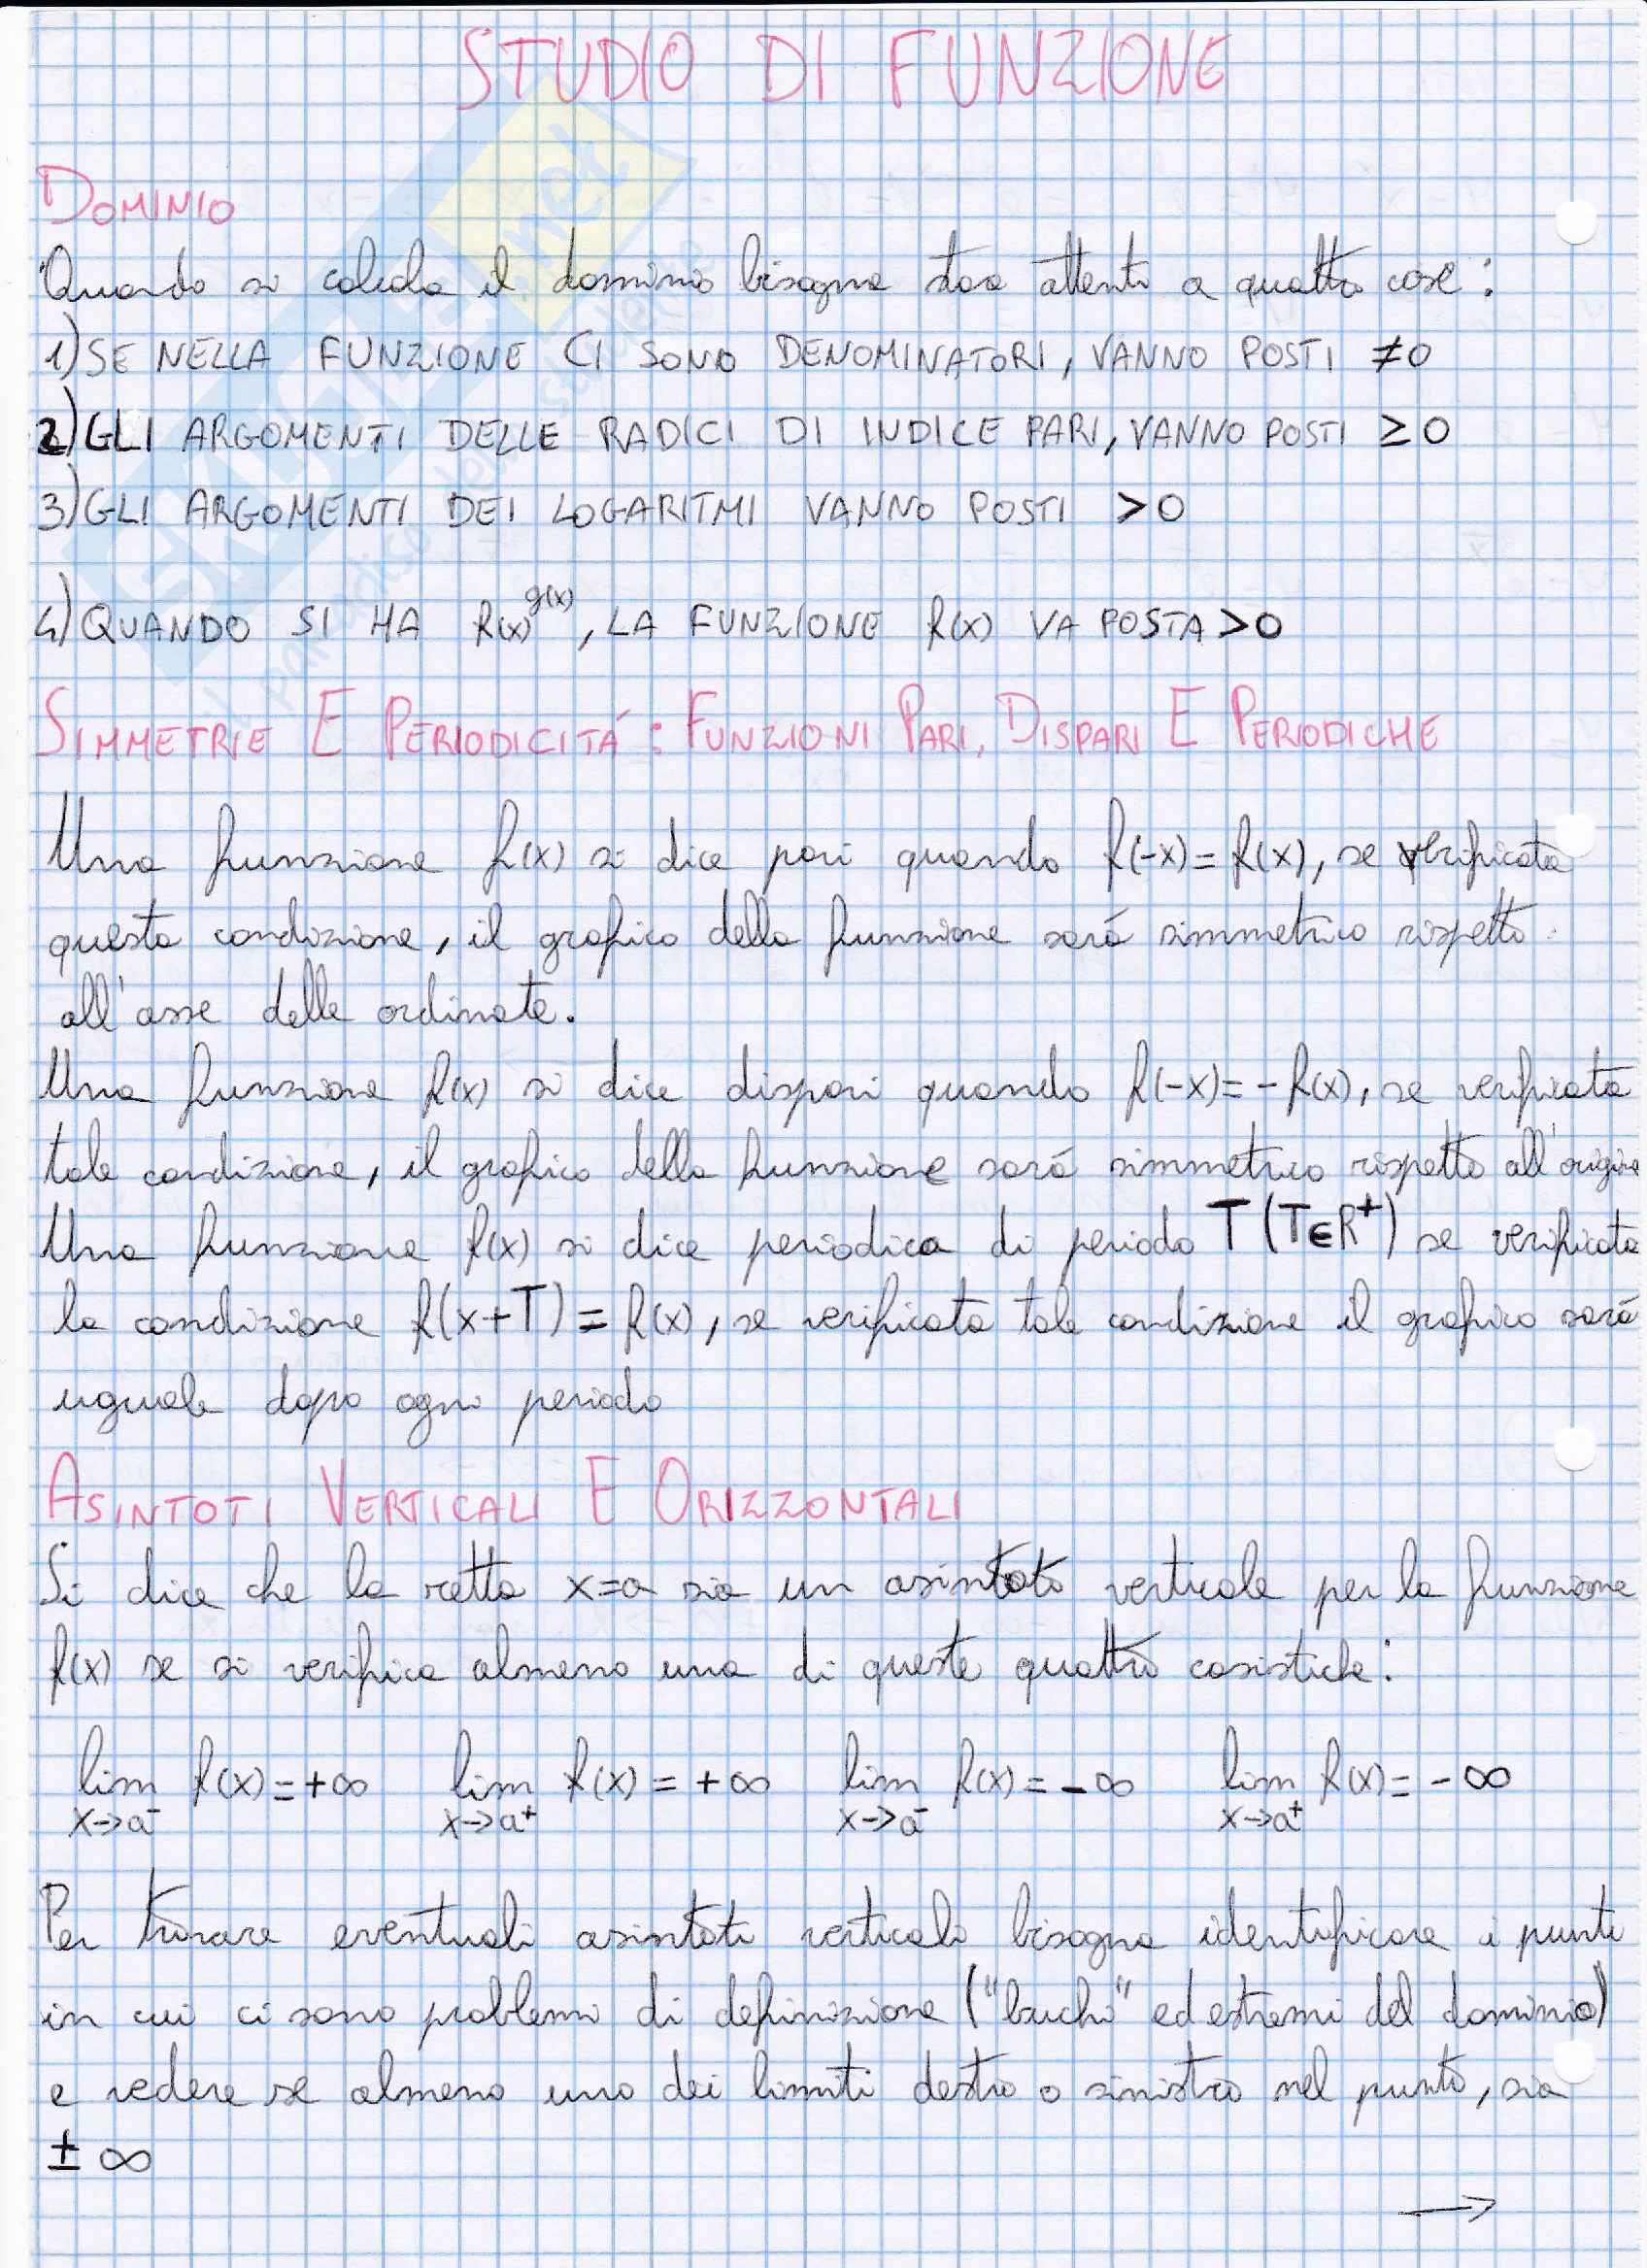 STUDIO DI FUNZIONE
DOMINIO
Quando si calcola il dominio bisogna stare attenti a quattro cose:
1) SE NELLA FUNZIONE CI SONO DENOMINATORI, VANNO POSTI ≠0
2) GLI ARGOMENTI DELLE RADICI DI INDICE PARI, VANNO POSTI ≥0
3) GLI ARGOMENTI DEI LOGARITMI VANNO POSTI >0
4) QUANDO SI HA f(x)^g(x), LA FUNZIONE f(x) VA POSTA >0
SIMMETRIE E PERIODICITÁ: FUNZIONI PARI, DISPARI E PERIODICHE
Una funzione f(x) si dice pari quando f(-x)=f(x), se verificata
questa condizione, il grafico della funzione sará simmetrico rispetto
all'asse delle ordinate.
Una funzione f(x) si dice dispari quando f(-x)=-f(x), se verificata
tale condizione, il grafico della funzione sará simmetrico rispetto all'origine
Una funzione f(x) si dice periodica di periodo T (T∈R⁺) se verificata
la condizione f(x+T)=f(x), se verificata tale condizione il grafico sará
uguale dopo ogni periodo
ASINTOTI VERTICALI E ORIZZONTALI
Si dice che la retta x=a sia un asintoto verticale per la funzione
f(x) se si verifica almeno una di queste quattro casistiche:
lim f(x)=+∞ lim f(x)=+∞ lim f(x)=-∞ lim f(x)=-∞
x→a⁻ x→a⁺ x→a⁻ x→a⁺
Per trovare eventuali asintoti verticali bisogna identificare i punti
in cui ci sono problemi di definizione ("buchi" ed estremi del dominio)
e vedere se almeno uno dei limiti destro o sinistro nel punto, sia
± ∞
→
SKUOLA.net
il paradiso dello studente